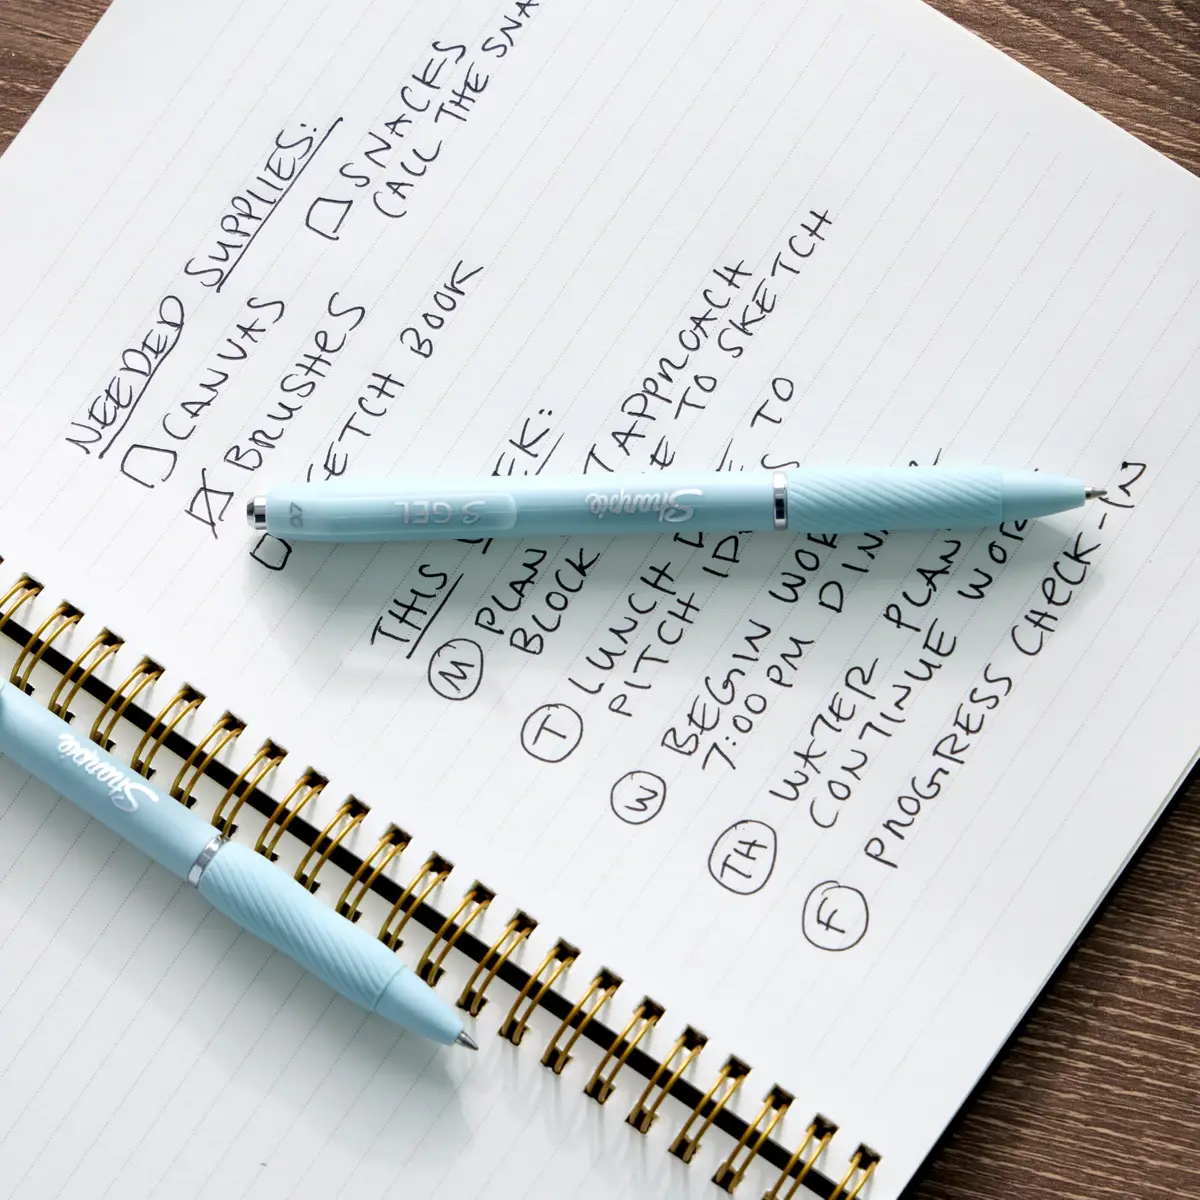 NEEDED SUPPLIES:
CANVAS
BRUSHES
ETCH BOOK
SNACKS
CALL THE SNA
THIS EK:
M PLAN TAPPROACH
BLOCK E TO SKETCH
T LUNCH TO
PITCH ID
W BEGIN WOR
7:00 PM DIN
TH WATER PLAN
CONTINUE WOR
F PROGRESS CHECK-IN
0.7 S·GEL Sharpie
Sharpie